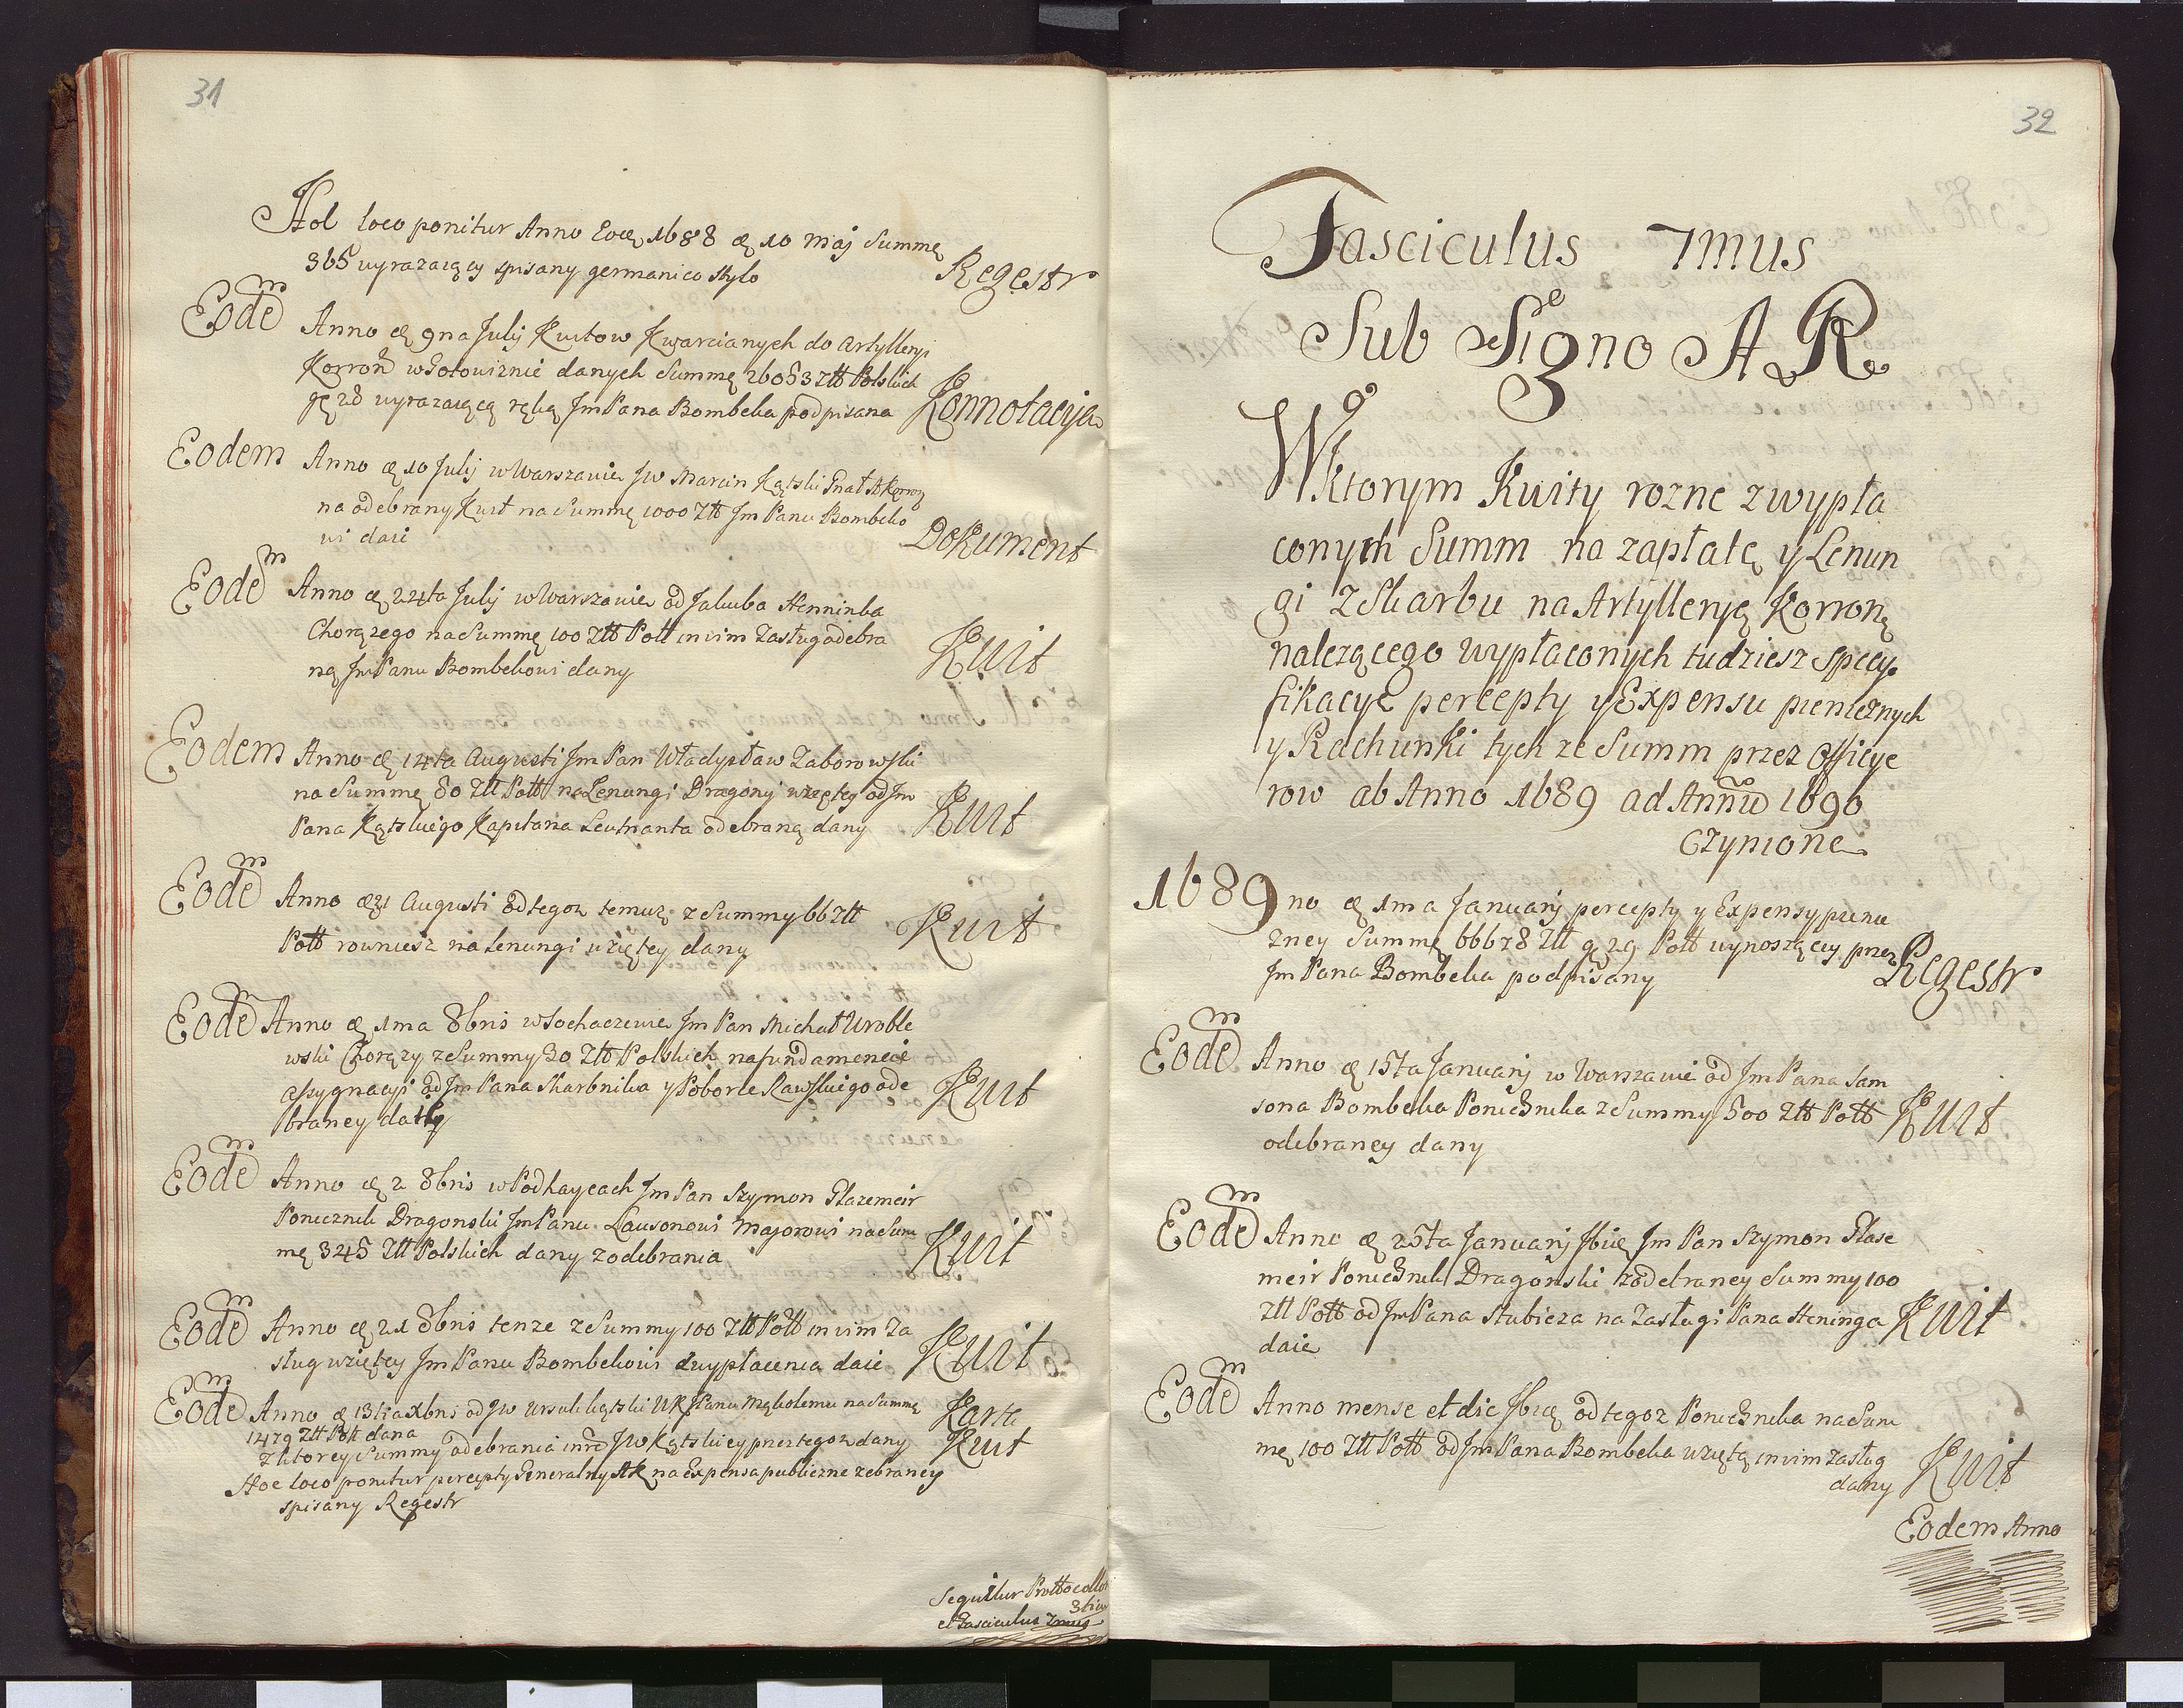 31
Hoc loco ponitur Anno Eođ 1688 đ 10 Maj Summę
365 wyrazaiący spisany germanico stylo Regestr
Eodem Anno đ 9na Julij Kwitow Kwarcianych do Artylleryi
Korroñ w Gotowiznie danych Summę 26053 Ztt Polskich
gę 28 wyrazaiącą ręką Jm Pana Bombeka podpisana Konnotacyja
Eodem Anno đ 10 Julij w Warszawie Jw Marcin Kątski Gnał A Korrony
na odebrany Kwit na Summę 1000 Ztt Jm Panu Bombeko
wi daie Dokument
Eodem Anno đ 24ta Julij w Warszawie od Jakuba Henninka
Chorązego na Summę 100 Ztt Poll in vim Zasług odebra
ną Jm Panu Bombekowi dany Kwit
Eodem Anno đ 14ta Augusti Jm Pan Władysław Zaborowski
na Summę 80 Ztt Poll na Lenungi Dragonij wziętey od Jm
Pana Kątskiego Kapitana Leutnanta odebraną dany Kwit
Eodem Anno đ 31 Augusti od tegoz temuz z Summy 66 Ztt
Poll rowniesz na Lenungi wziętey dany Kwit
Eodem Anno đ 1ma 8bris w Sochaczewie Jm Pan Michał Wroble
wski Chorązy z Summy 30 Ztt Polskich na fundamencie
assygnacyi od Jm Pana Skarbnika y Poborce Rawskiego ode
braney daie Kwit
Eodem Anno đ 2 8bris w Podhaycach Jm Pan Szymon Glazemeir
Porucznik Dragonski Jm Panu Lausonowi Majorowi na Sum
mę 345 Ztt Polskich dany z odebrania Kwit
Eodem Anno đ 21 8bris tenze z Summy 100 Ztt Poll in vim Za
sług wziętey Jm Panu Bombekowi z wypłacenia daie Kwit
Eodem Anno đ 13tia Xbris od Jw Ursuli Kątski UK Panu Mąkolemu na Summę Karta
1479 Ztt Poll dana
z ktorey Summy odebrania Jw Kątskiey przez tegoz dany Kwit
Hoc loco ponitur percepty Generalny AK na Expensa publiczne zebraney
spisany Regestr
Sequitur Prottocollo
3tia
et Fasciculus 7mus
32
Fasciculus 7mus
Sub Signo A R
W Ktorym Kwity rozne z wypła
conych Summ na zapłatę y Lenun
gi z Skarbu na Artylleryą Korroną
nalezącego wypłaconych tudziesz specy
fikacye percepty y Expensu pienieznych
y Rachunki tych ze Summ przez Officye
row ab Anno 1689 ad Annũ 1690
czynione
1689no đ 1ma Januarij percepty y Expensy pienię
zney Summę 66678 Ztt gę 29 Poll wynoszący przez
Jm Pana Bombeka podpisany Regestr
Eodem Anno đ 15ta Januarij w Warszawie od Jm Pana Sam
sona Bombeka Porucznika z Summy 500 Ztt Poll
odebraney dany Kwit
Eodem Anno đ 25ta Januarij ibiđ Jm Pan Szymon Glase
meir Porucznik Dragonski z odebraney Summy 100
Ztt Poll od Jm Pana Stubicza na Zasługi Pana Heninga
daie Kwit
Eodem Anno mense et die ibiđ od tegoz Porucznika na Sum
mę 100 Ztt Poll od Jm Pana Bombeka wziętą in vim zasług
dany Kwit
Eodem Anno